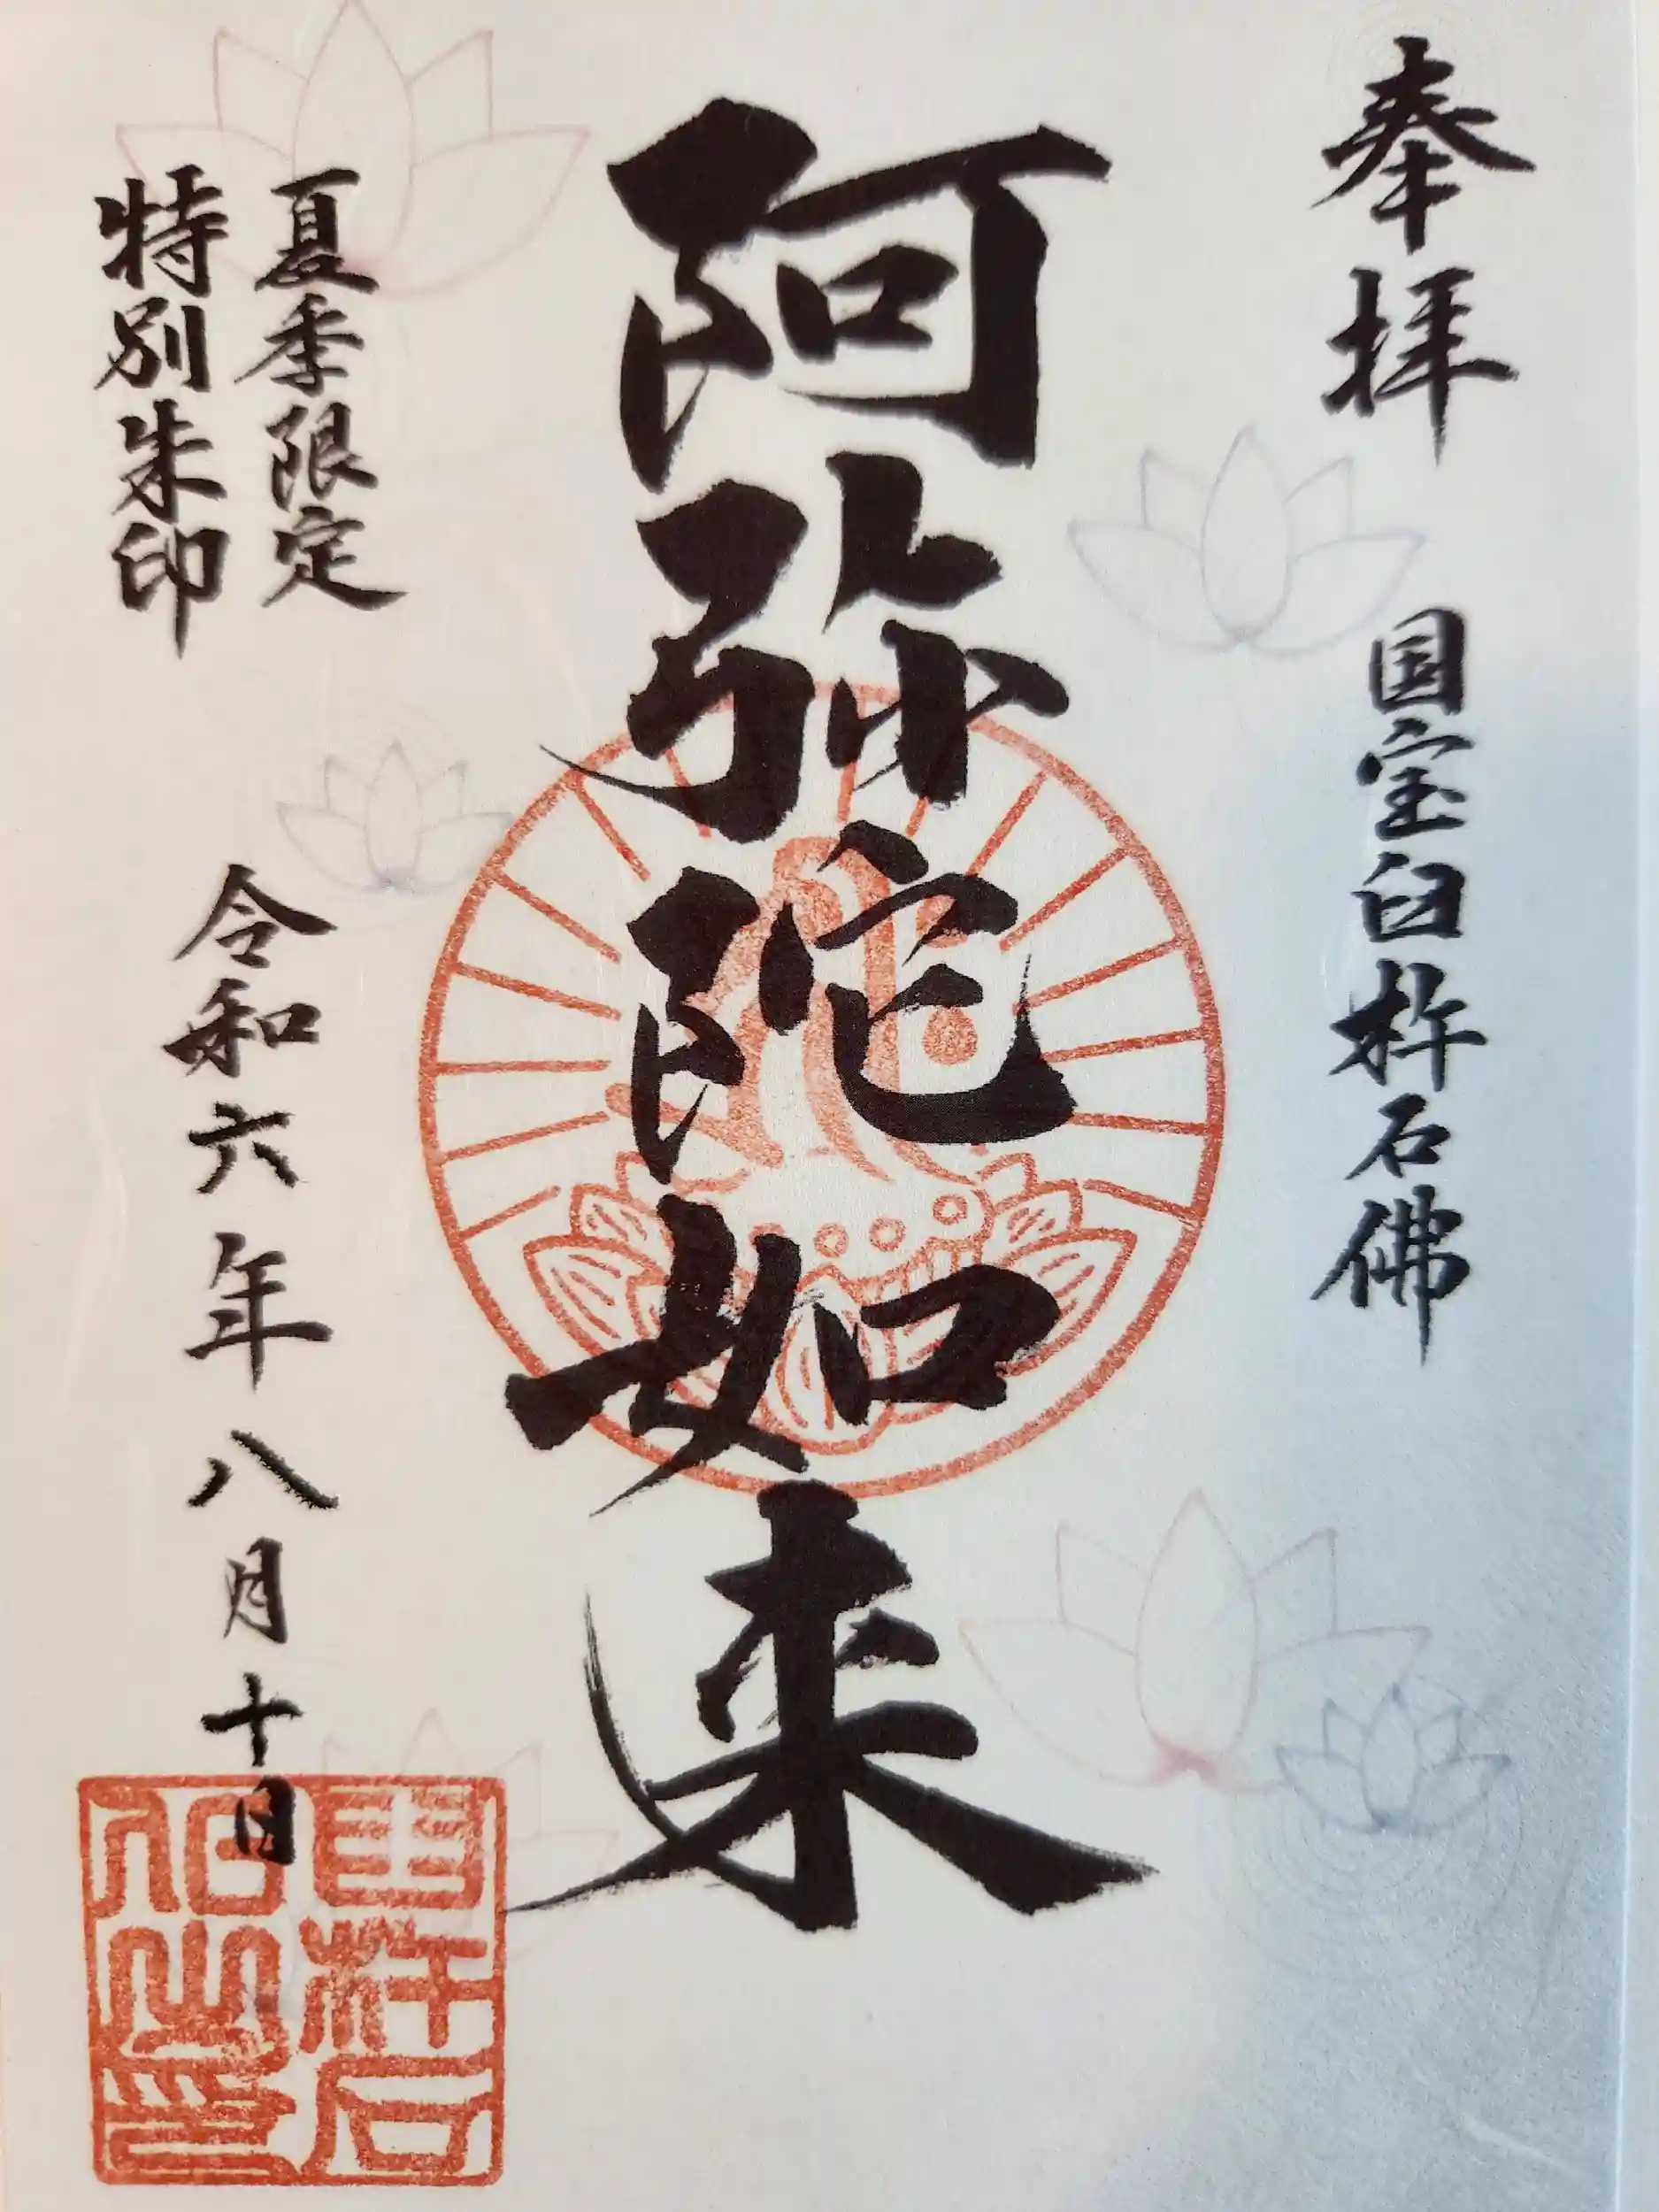 奉拝
国宝臼杵石佛
阿弥陀如来
夏季限定
特別朱印
令和六年八月十日
臼杵石
仏之印